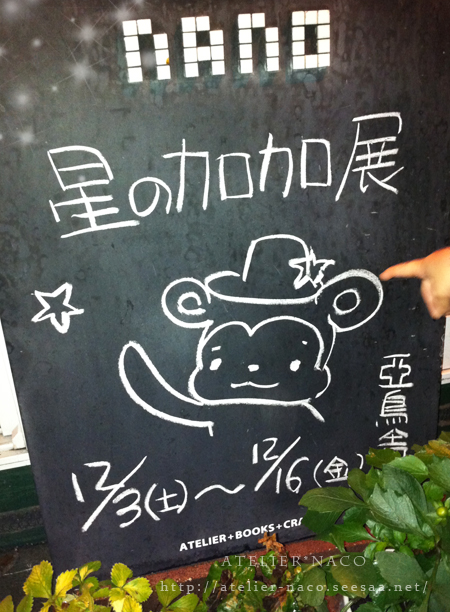 nano
星の加加展
亞鳥舎
12/3(土)〜12/16(金)
ATELIER+BOOKS+CRA
ATELIER*NACO
http://atelier-naco.seesaa.net/